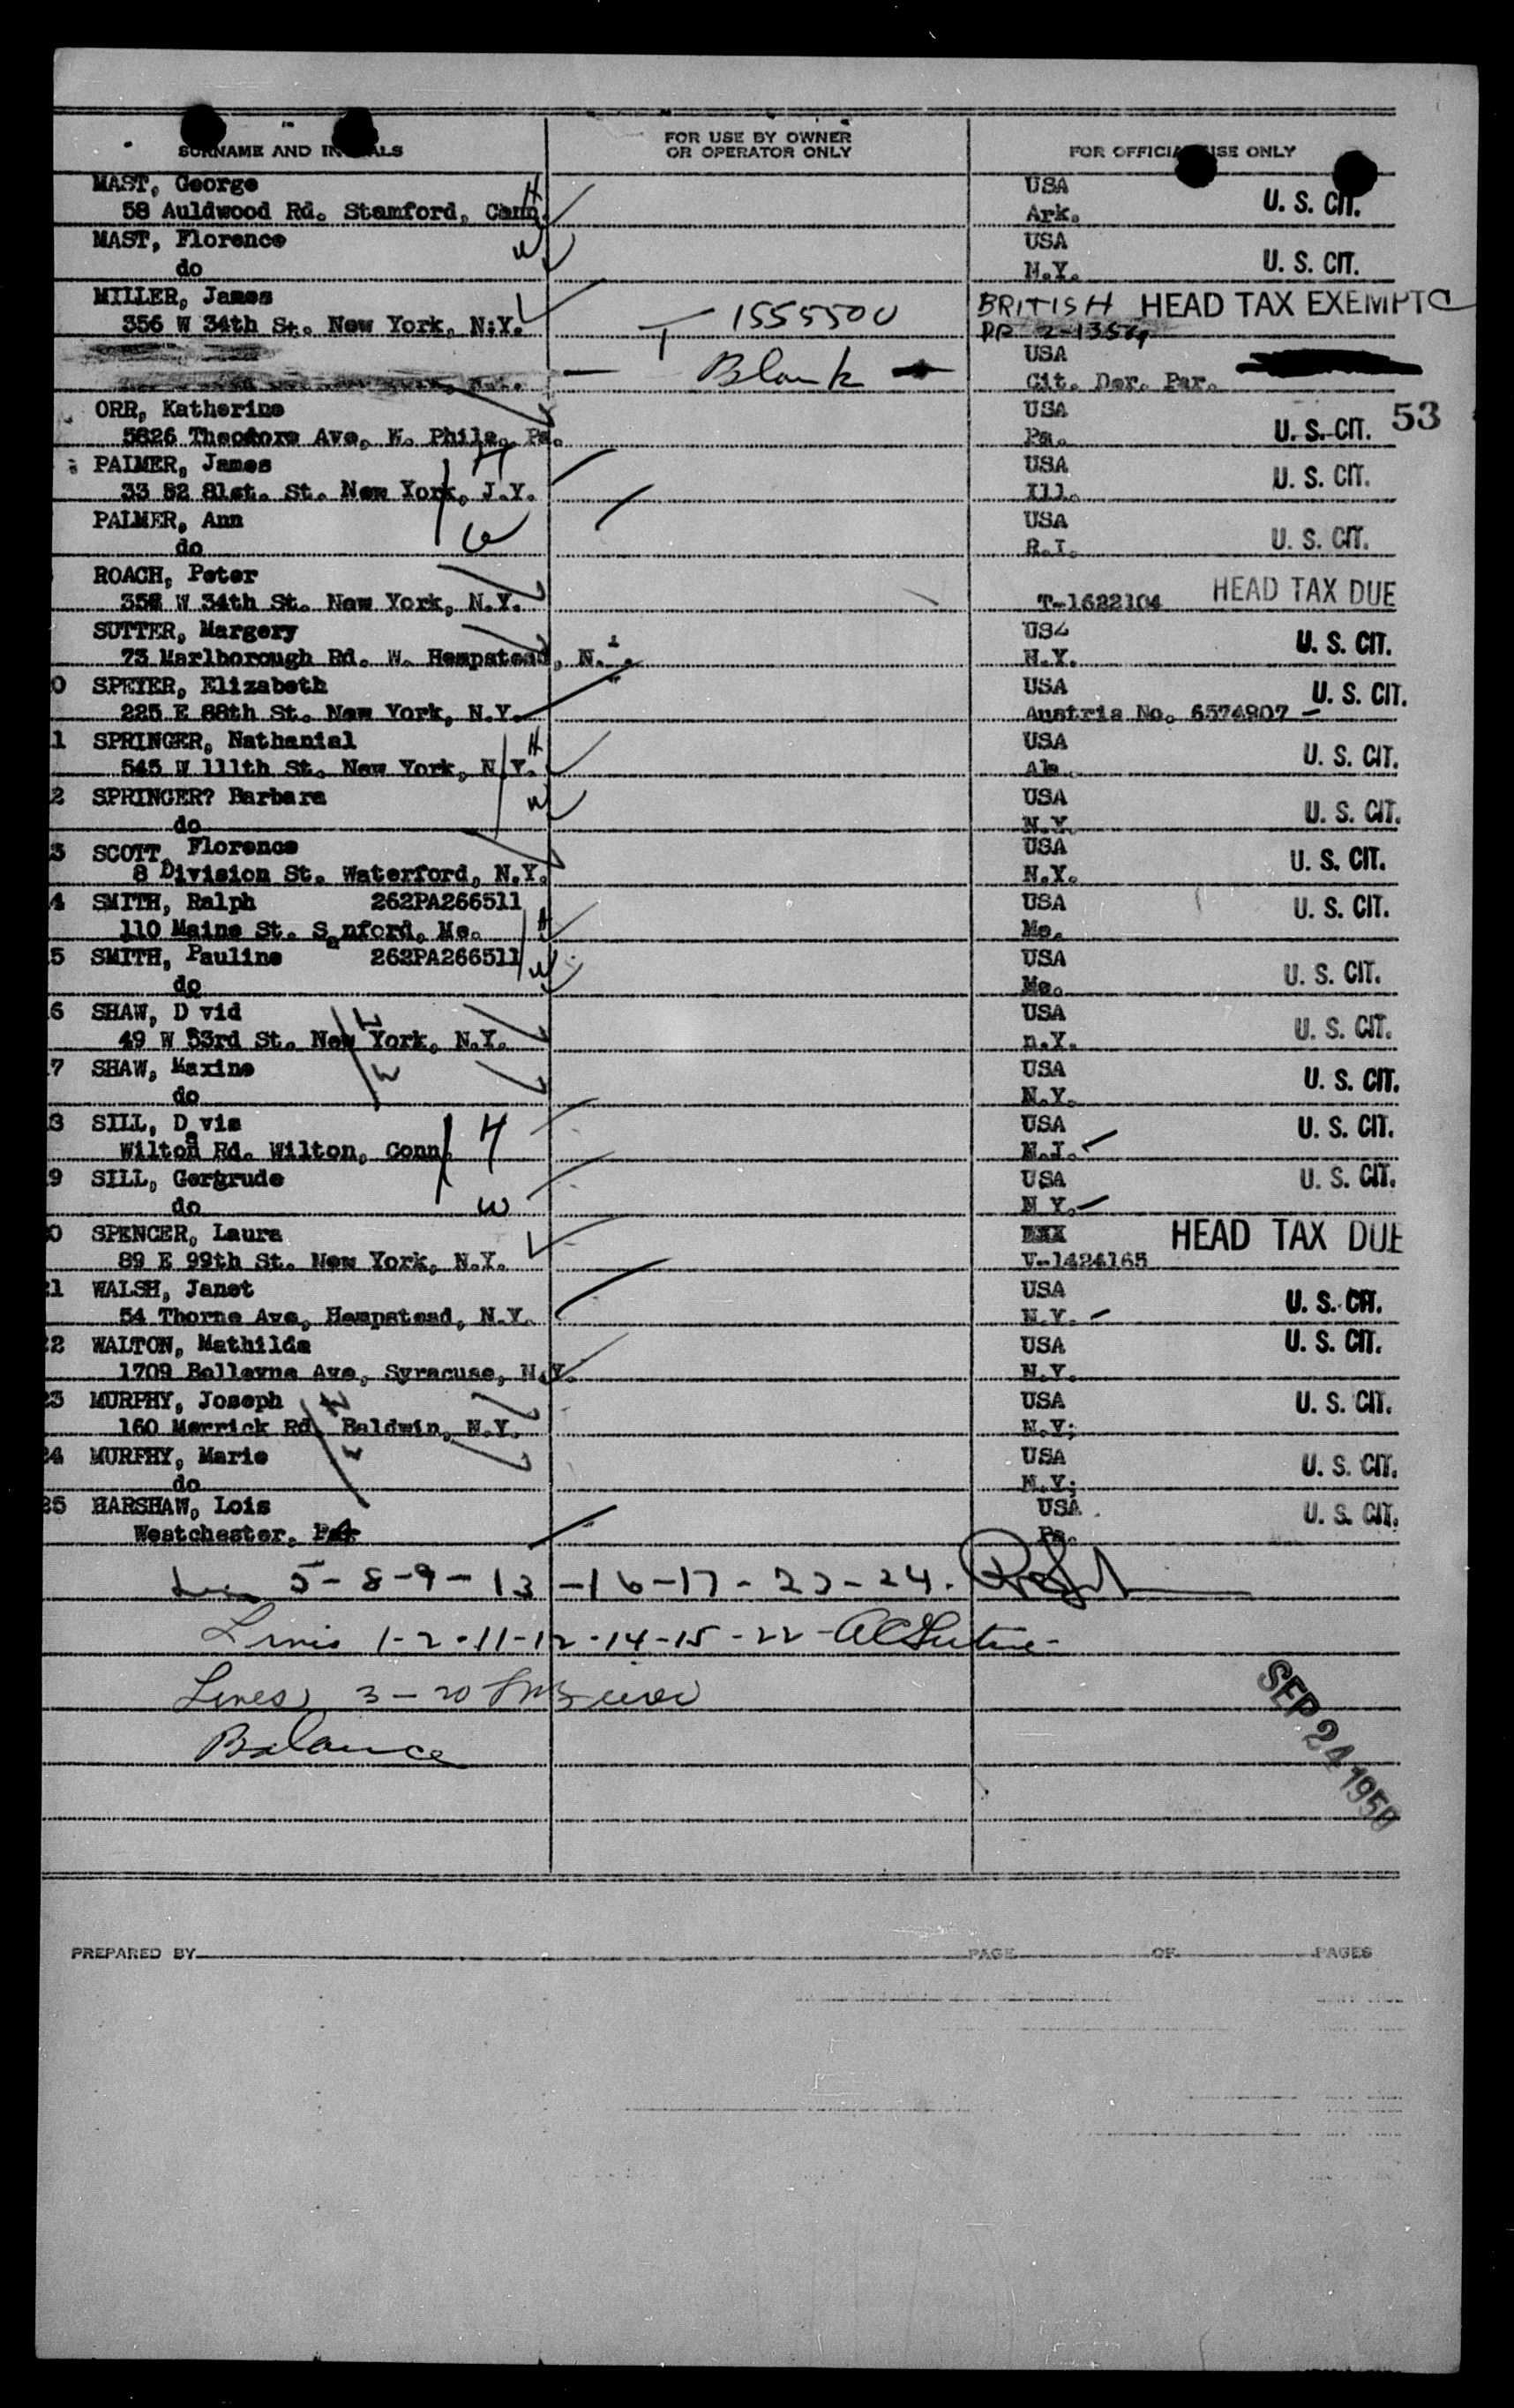 SURNAME AND INITIALS FOR USE BY OWNER OR OPERATOR ONLY FOR OFFICIAL USE ONLY
MAST, George H USA U. S. CIT.
58 Auldwood Rd. Stamford, Conn. Ark.
MAST, Florence W USA
do N.Y. U. S. CIT.
MILLER, James BRITISH HEAD TAX EXEMPT C
356 W 34th St. New York, N.Y. T 1555500
Blank USA
Cit. Der. Par.
ORR, Katherine USA 53
5826 Theodore Ave, W. Phila, Pa. Pa. U. S. CIT.
PALMER, James H USA U. S. CIT.
33 52 81st. St. New York, J.Y. Ill.
PALMER, Ann W USA
do R.I. U. S. CIT.
ROACH, Peter HEAD TAX DUE
358 W 34th St. New York, N.Y. T-1622104
SUTTER, Margery USA U. S. CIT.
73 Marlborough Rd. W. Hempstead, N.Y. N.Y.
0 SPEYER, Elizabeth USA U. S. CIT.
225 E 88th St. New York, N.Y. Austria No. 6574907 -
1 SPRINGER, Nathanial H USA U. S. CIT.
545 W 111th St. New York, N.Y. Ala.
2 SPRINGER? Barbara W USA U. S. CIT.
do N.Y.
3 SCOTT, Florence USA U. S. CIT.
8 Division St. Waterford, N.Y. N.Y.
4 SMITH, Ralph 262PA266511 USA U. S. CIT.
110 Maine St. Sanford, Me. H Me.
5 SMITH, Pauline 262PA266511 W USA U. S. CIT.
do Me.
6 SHAW, D vid USA U. S. CIT.
49 W 53rd St. New York, N.Y. n.Y.
7 SHAW, Maxine USA U. S. CIT.
do N.Y.
8 SILL, Davis H USA U. S. CIT.
Wilton Rd. Wilton, Conn. N.J.
9 SILL, Gertrude USA U. S. CIT.
do W N Y.
0 SPENCER, Laura HEAD TAX DUE
89 E 99th St. New York, N.Y. V-1424165
21 WALSH, Janet USA U. S. CIT.
54 Thorne Ave, Hempstead, N.Y. N.Y.
22 WALTON, Mathilda USA U. S. CIT.
1709 Bellevue Ave, Syracuse, N.Y. N.Y.
23 MURPHY, Joseph H USA U. S. CIT.
160 Merrick Rd. Baldwin, N.Y. N.Y;
24 MURPHY, Marie W USA U. S. CIT.
do N.Y;
25 HARSHAW, Lois USA U. S. CIT.
Westchester, Pa. Pa.
5-8-9-13-16-17-23-24.
Lines 1-2-11-12-14-15-22-
Lines 3-20
Balance
SEP 24 1950
PREPARED BY PAGE OF PAGES